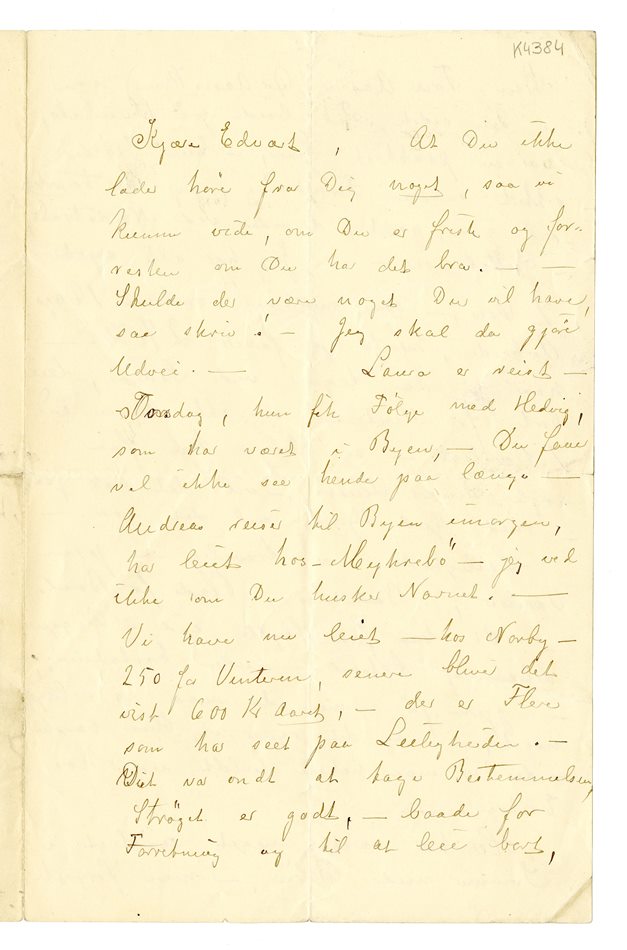 K4384
Kjære Edvart, At Du ikke
lader høre fra Dig noget, saa vi
kunne vide, om Du er frisk og for-
resten om Du har det bra. — —
Skulde der være noget Du vil have,
saa skriv! — Jeg skal da gjöre
Udvei. — Laura er reist —
Torsdag, hun fik Følge med Hedvig,
som har været i Byen, — Du faar
vel ikke see hende paa længe —
Andreas reiser til Byen imorgen,
har leiet hos — — jeg ved
ikke om Du husker Navnet. —
Vi have nu leiet — hos Norby —
250 for Vinteren, senere bliver det
vist 600 Kr Aaret, — der er Flere
som har seet paa Leiligheden. —
Det var ondt at tage Bestemmelsen,
Strøget er godt, — baade for
Forretning og til at leie bort,